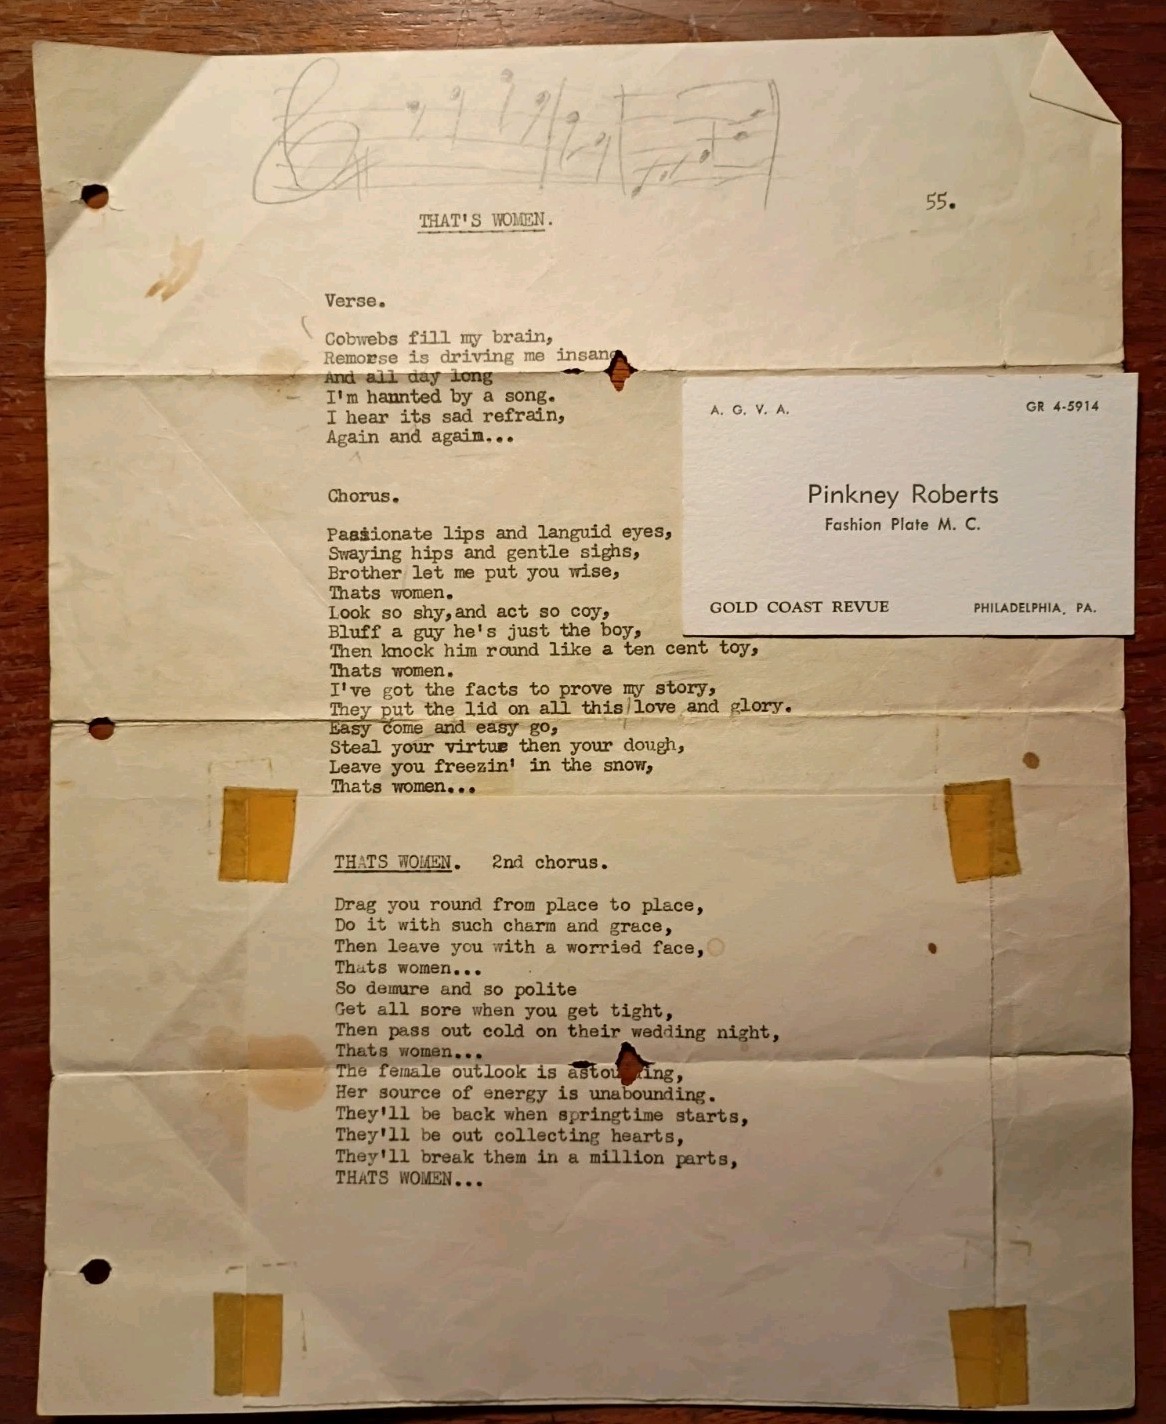 55.
THAT'S WOMEN.
Verse.
Cobwebs fill my brain,
Remorse is driving me insane
And all day long
I'm haunted by a song.
I hear its sad refrain,
Again and again...
A. G. V. A.
GR 4-5914
Pinkney Roberts
Fashion Plate M. C.
GOLD COAST REVUE
PHILADELPHIA, PA.
Chorus.
Passionate lips and languid eyes,
Swaying hips and gentle sighs,
Brother let me put you wise,
Thats women.
Look so shy,and act so coy,
Bluff a guy he's just the boy,
Then knock him round like a ten cent toy,
Thats women.
I've got the facts to prove my story,
They put the lid on all this love and glory.
Easy come and easy go,
Steal your virtue then your dough,
Leave you freezin' in the snow,
Thats women...
THATS WOMEN. 2nd chorus.
Drag you round from place to place,
Do it with such charm and grace,
Then leave you with a worried face,
Thats women...
So demure and so polite
Get all sore when you get tight,
Then pass out cold on their wedding night,
Thats women...
The female outlook is astounding,
Her source of energy is unabounding.
They'll be back when springtime starts,
They'll be out collecting hearts,
They'll break them in a million parts,
THATS WOMEN...